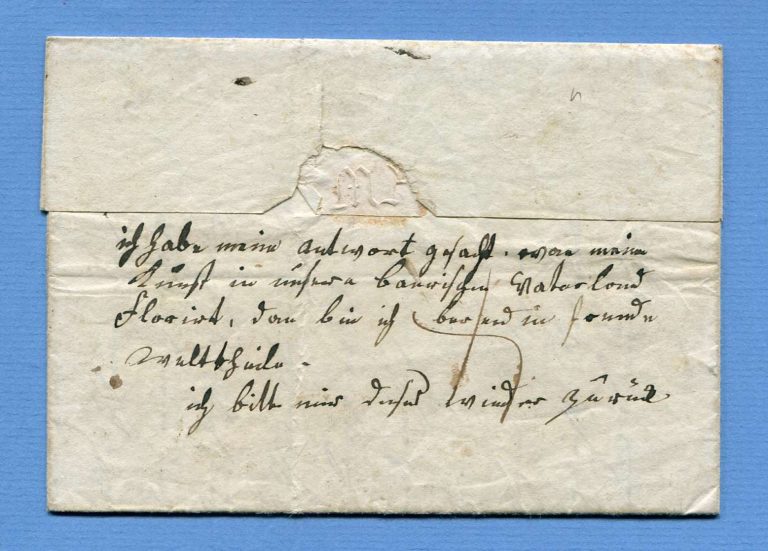 M
ich habe meine antwort gesacht. wan meine
Kunst in unsern baerischen Vaterland
Florirt, dan bin ich bereid in fremde
Welttheile.
ich bitte mir dieses wieder zurück